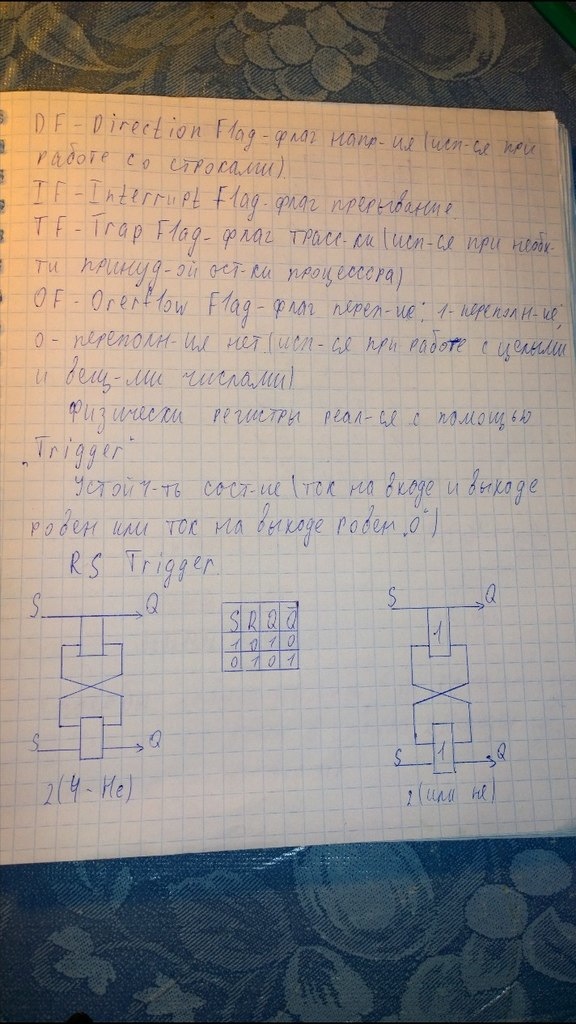 DF - Direction Flag - флаг напр-ия (исп-ся при
работе со строками).
IF - Interrupt Flag - флаг прерывание.
TF - Trap Flag - флаг трасс-ки (исп-ся при необх-
ти принуд-ой ост-ки процессора)
OF - Overflow Flag - флаг переп-ие; 1 - переполн-ие;
0 - переполн-ия нет (исп-ся при работе с целыми
и вещ-ми числами)
Физически регистры реал-ся с помощью
"Trigger"
Устойч-ть сост-ие (ток на входе и выходе
ровен или ток на выходе ровен "0")
RS Trigger.
S Q
S Q
2(И - Не)
S R Q Q̅
1 0 1 0
0 1 0 1
S Q
1
1
S Q
2(или не)